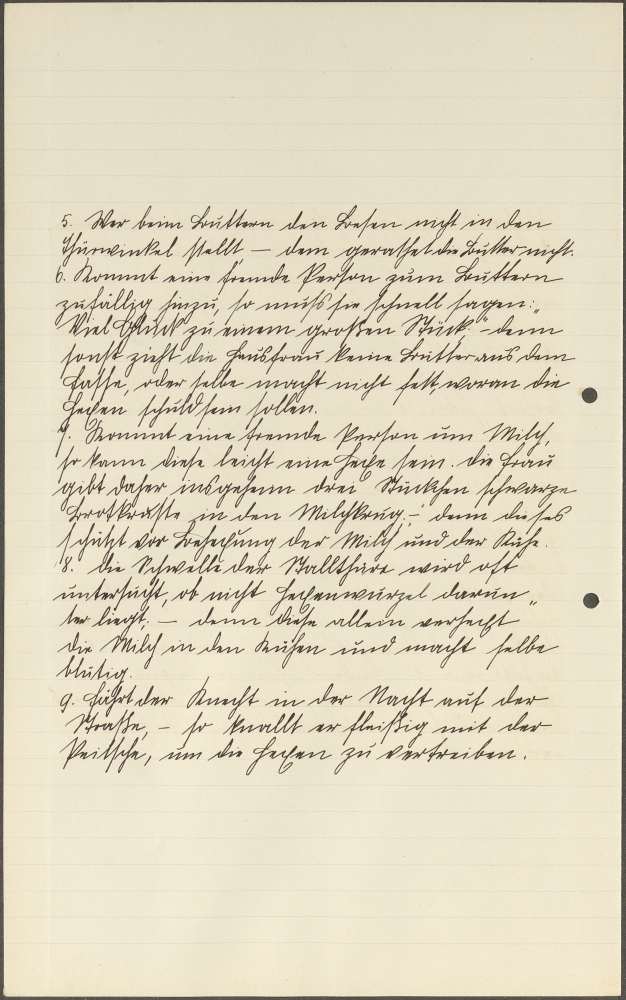 5. Wer beim Buttern den Besen nicht in den
Thürwinkel stellt — dem gerathet die Butter nicht.
6. Kommt eine fremde Person zum Buttern
zufällig hinzu, so muß sie schnell sagen: „
Viel Glück zu einem großen Stück." – denn
sonst zieht die Hausfrau keine Butter aus dem
Fasse, oder selbe macht nicht fett, woran die
Hexen schuld sein sollen.
7. Kommt eine fremde Person um Milch,
so kann diese leicht eine Hexe sein. Die Frau
gibt daher insgeheim drei Stückchen schwarze
Brotkruste in den Milchkrug; – denn dieses
schützt vor Behexung der Milch und der Kühe.
8. Die Schwelle der Stallthüre wird oft
untersucht, ob nicht Hexenwurzel darun„
ter liegt; — denn diese allein verhext
die Milch in den Kühen und macht selbe
blutig.
9. Fährt der Knecht in der Nacht auf der
Straße, – so knallt er fleißig mit der
Peitsche, um die Hexen zu vertreiben.